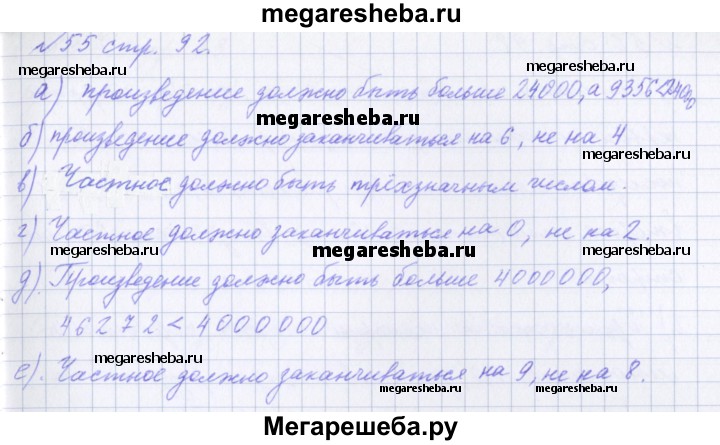 megaresheba.ru
№55 стр. 92.
megaresheba.ru megaresheba.ru
а) произведение должно быть больше 24000, а 9356<24000
megaresheba.ru
б) произведение должно заканчиваться на 6, не на 4
megaresheba.ru megaresheba.ru
в) Частное должно быть трёхзначным числом.
г) Частное должно заканчиваться на 0, не на 2.
megaresheba.ru megaresheba.ru megaresheba.ru
д). Произведение должно быть больше 4000000,
46272 < 4000000
megaresheba.ru megaresheba.ru
е). Частное должно заканчиваться на 9, не на 8.
megaresheba.ru
Мегарешеба.ру